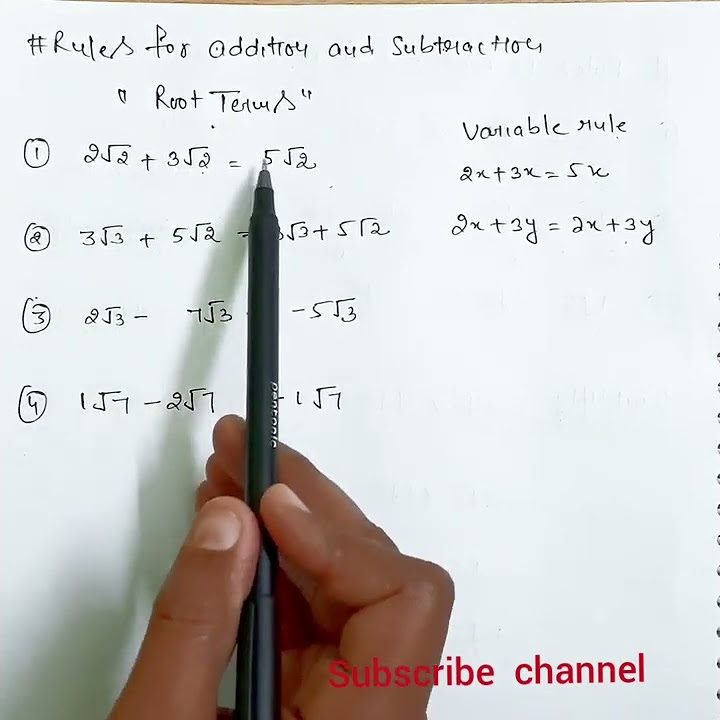 # Rules for addition and Subtraction
" Root Terms"
① 2√2 + 3√2 = 5√2
② 3√3 + 5√2 = √3 + 5√2
③ 2√3 - 7√3 -5√3
④ 1√7 - 2√7 -1√7
Variable rule
2x+3x=5x
2x+3y=2x+3y
pentonic
Subscribe channel